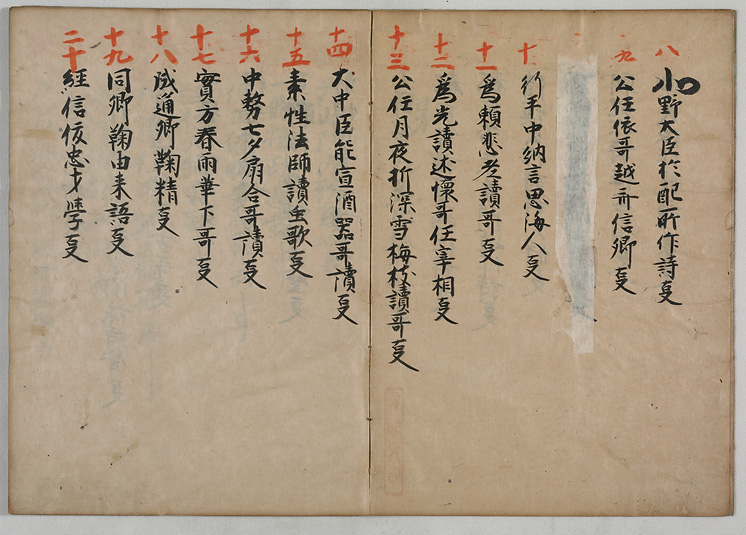 八 北野大臣於配所作詩事
九 公任依哥越斉信卿事
十 行平中納言思海人事
十一 為頼悲老讀哥事
十二 為光讀述懐哥任宰相事
十三 公任月夜折深雪梅枝讀哥事
十四 大中臣能宣酒器哥讀事
十五 素性法師讀虫歌事
十六 中務七夕扇合哥讀事
十七 實方春雨華下哥事
十八 成通卿鞠精事
十九 同卿鞠由来語事
二十 經信俊忠才學事